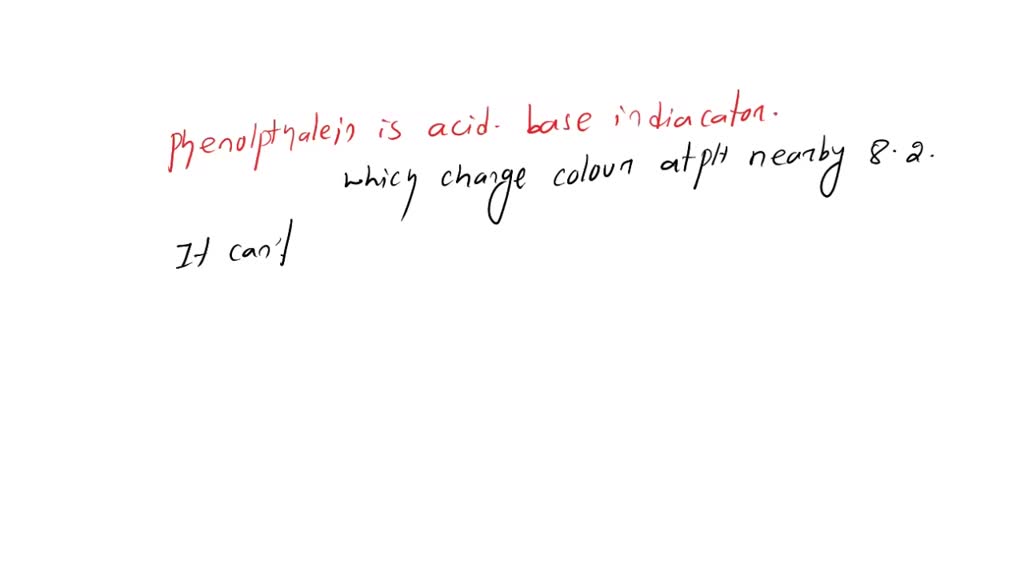 phenolpthalein is acid. base indiacator.
which change colour at pH nearby 8.2.
It can't